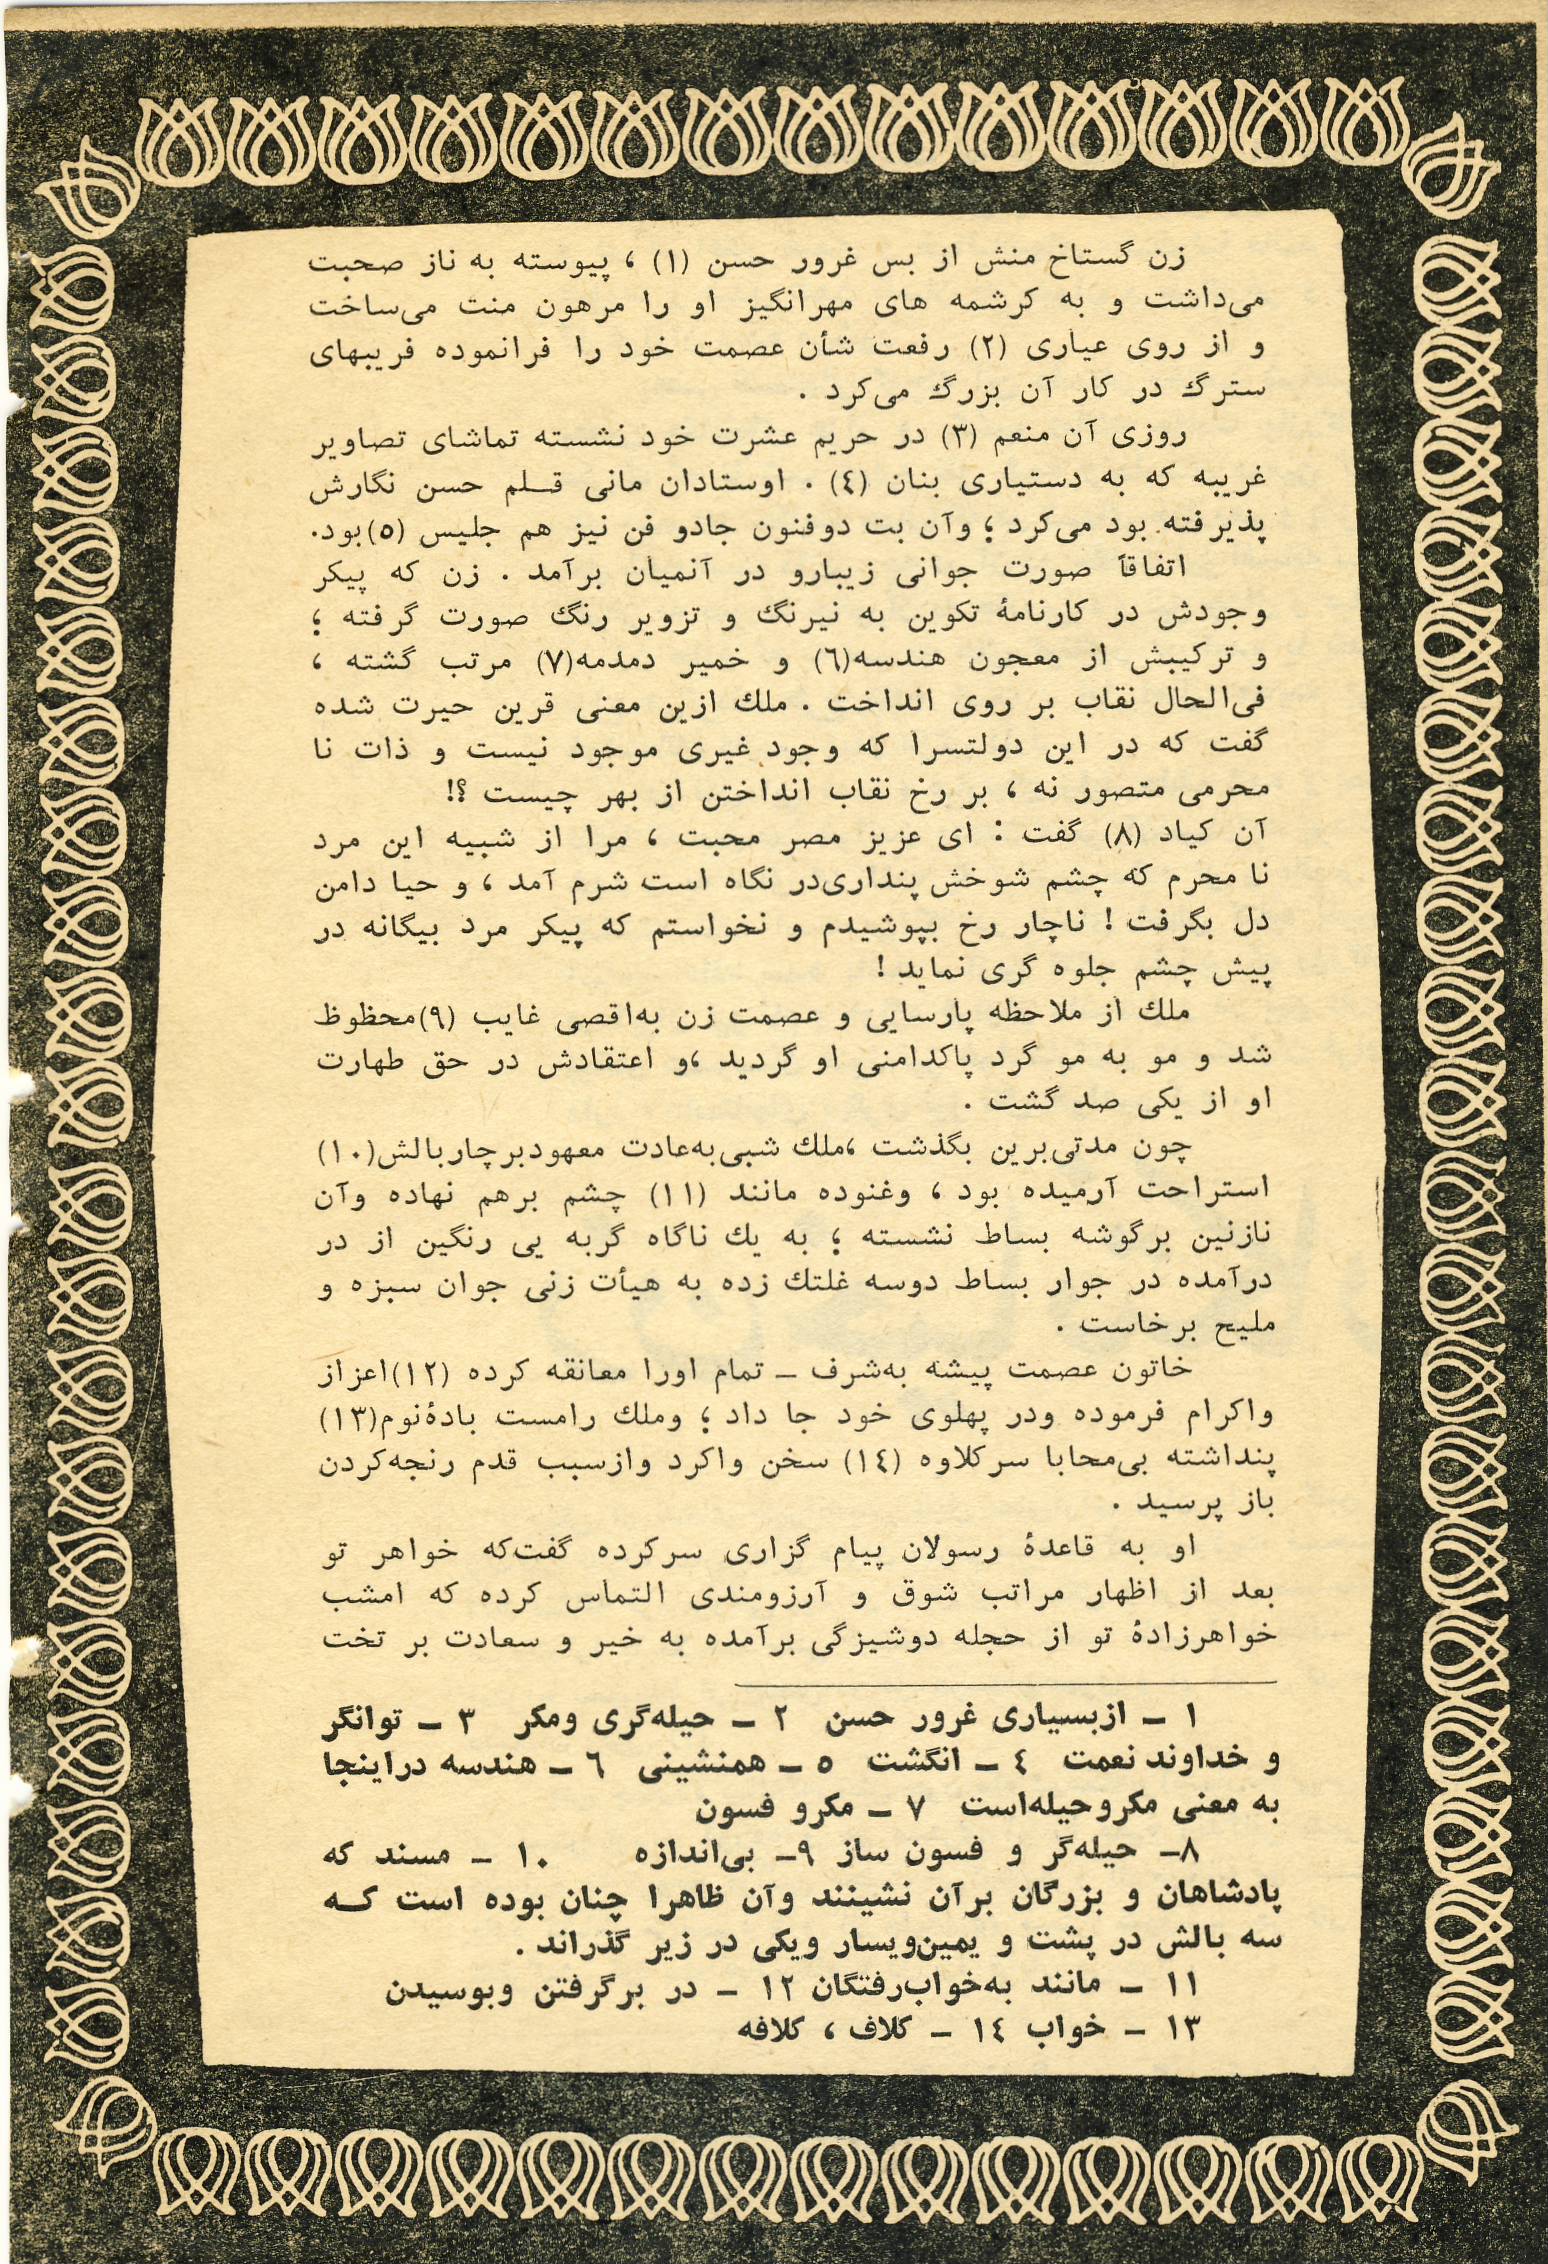 زن گستاخ منش از بس غرور حسن (۱) ، پیوسته به ناز صحبت
می‌داشت و به کرشمه های مهرانگیز او را مرهون منت می‌ساخت
و از روی عیاری (۲) رفعت شأن عصمت خود را فرانموده فریبهای
سترگ در کار آن بزرگ می‌کرد .
روزی آن منعم (۳) در حریم عشرت خود نشسته تماشای تصاویر
غریبه که به دستیاری بنان (٤) . اوستادان مانی قلم حسن نگارش
پذیرفته بود می‌کرد ؛ وآن بت دوفنون جادو فن نیز هم جلیس (٥)بود.
اتفاقاً صورت جوانی زیبارو در آنمیان برآمد . زن که پیکر
وجودش در کارنامهٔ تکوین به نیرنگ و تزویر رنگ صورت گرفته ؛
و ترکیبش از معجون هندسه(٦) و خمیر دمدمه(۷) مرتب گشته ،
فی‌الحال نقاب بر روی انداخت . ملك ازین معنی قرین حیرت شده
گفت که در این دولتسرا که وجود غیری موجود نیست و ذات نا
محرمی متصور نه ، بر رخ نقاب انداختن از بهر چیست ؟!
آن کیاد (۸) گفت : ای عزیز مصر محبت ، مرا از شبیه این مرد
نا محرم که چشم شوخش پنداری‌در نگاه است شرم آمد ، و حیا دامن
دل بگرفت ! ناچار رخ بپوشیدم و نخواستم که پیکر مرد بیگانه در
پیش چشم جلوه گری نماید !
ملك از ملاحظه پارسایی و عصمت زن به‌اقصی غایب (۹)محظوظ
شد و مو به مو گرد پاکدامنی او گردید ،و اعتقادش در حق طهارت
او از یکی صد گشت .
چون مدتی‌برین بگذشت ،ملك شبی‌به‌عادت معهودبرچاربالش(۱۰)
استراحت آرمیده بود ، وغنوده مانند (۱۱) چشم برهم نهاده وآن
نازنین برگوشه بساط نشسته ؛ به یك ناگاه گربه یی رنگین از در
درآمده در جوار بساط دوسه غلتك زده به هیأت زنی جوان سبزه و
ملیح برخاست .
خاتون عصمت پیشه به‌شرف ـ تمام اورا معانقه کرده (۱۲)اعزاز
واکرام فرموده ودر پهلوی خود جا داد ؛ وملك رامست بادهٔ‌نوم(۱۳)
پنداشته بی‌محابا سرکلاوه (۱٤) سخن واکرد وازسبب قدم رنجه‌کردن
باز پرسید .
او به قاعدهٔ رسولان پیام گزاری سرکرده گفت‌که خواهر تو
بعد از اظهار مراتب شوق و آرزومندی التماس کرده که امشب
خواهرزادهٔ تو از حجله دوشیزگی برآمده به خیر و سعادت بر تخت
۱ ـ ازبسیاری غرور حسن ۲ ـ حیله‌گری ومکر ۳ ـ توانگر
و خداوند نعمت ٤ ـ انگشت ٥ ـ همنشینی ٦ ـ هندسه دراینجا
به معنی مکروحیله‌است ۷ ـ مکرو فسون
۸ـ حیله‌گر و فسون ساز ۹ـ بی‌اندازه ۱۰ ـ مسند که
پادشاهان و بزرگان برآن نشینند وآن ظاهرا چنان بوده است که
سه بالش در پشت و یمین‌ویسار ویکی در زیر گذراند .
۱۱ ـ مانند به‌خواب‌رفتگان ۱۲ ـ در برگرفتن وبوسیدن
۱۳ ـ خواب ۱٤ ـ کلاف ، کلافه